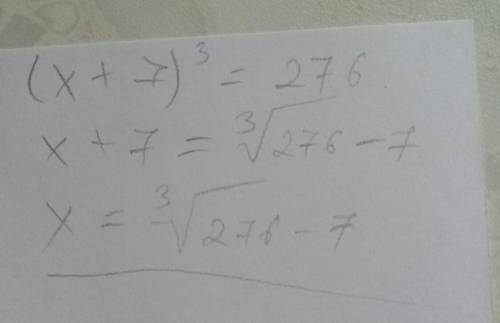 (x + 7)³ = 276
x + 7 = ³√276 - 7
x = ³√276 - 7